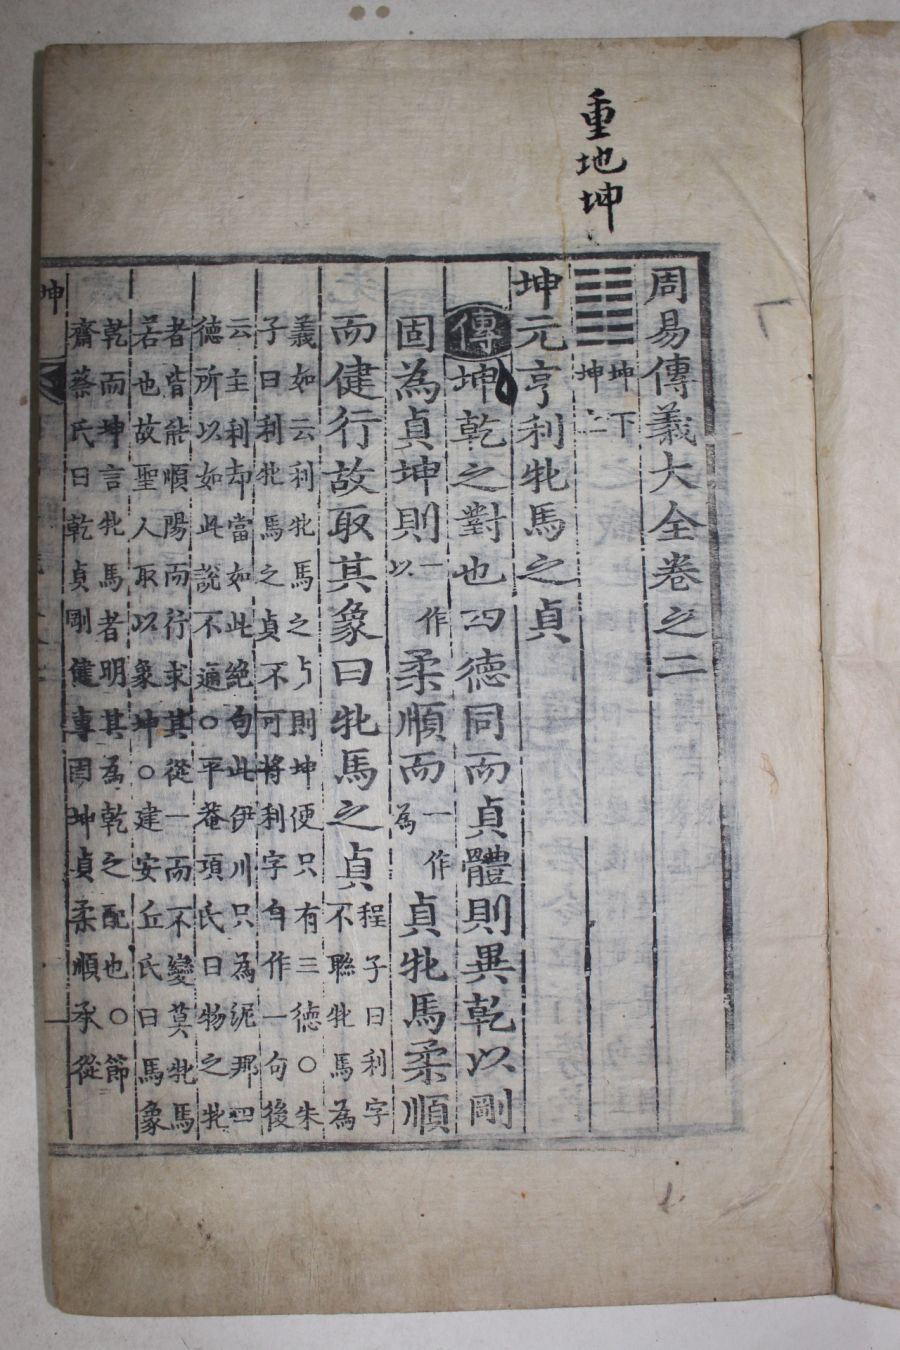 重地坤
周易傳義大全卷之二
坤下
坤上
坤元亨利牝馬之貞
傳坤乾之對也四德同而貞體則異乾以剛
固為貞坤則一作以柔順而一作為貞牝馬柔順
而健行故取其象曰牝馬之貞程子曰利字
不聯牝馬為
義如云利牝馬之則坤便只有三德○朱
子曰利牝馬之貞不可將利字自作一句後
云主利却當如此絶句此伊川只為泥那四
德所以如此說不通○平菴項氏曰物之牝
者皆能順陽而行求其從一而不變莫牝馬
若也故聖人取以象坤○建安丘氏曰馬象
乾而坤言牝馬者明其為乾之配也○節
齋蔡氏曰乾貞剛健專固坤貞柔順承從
坤